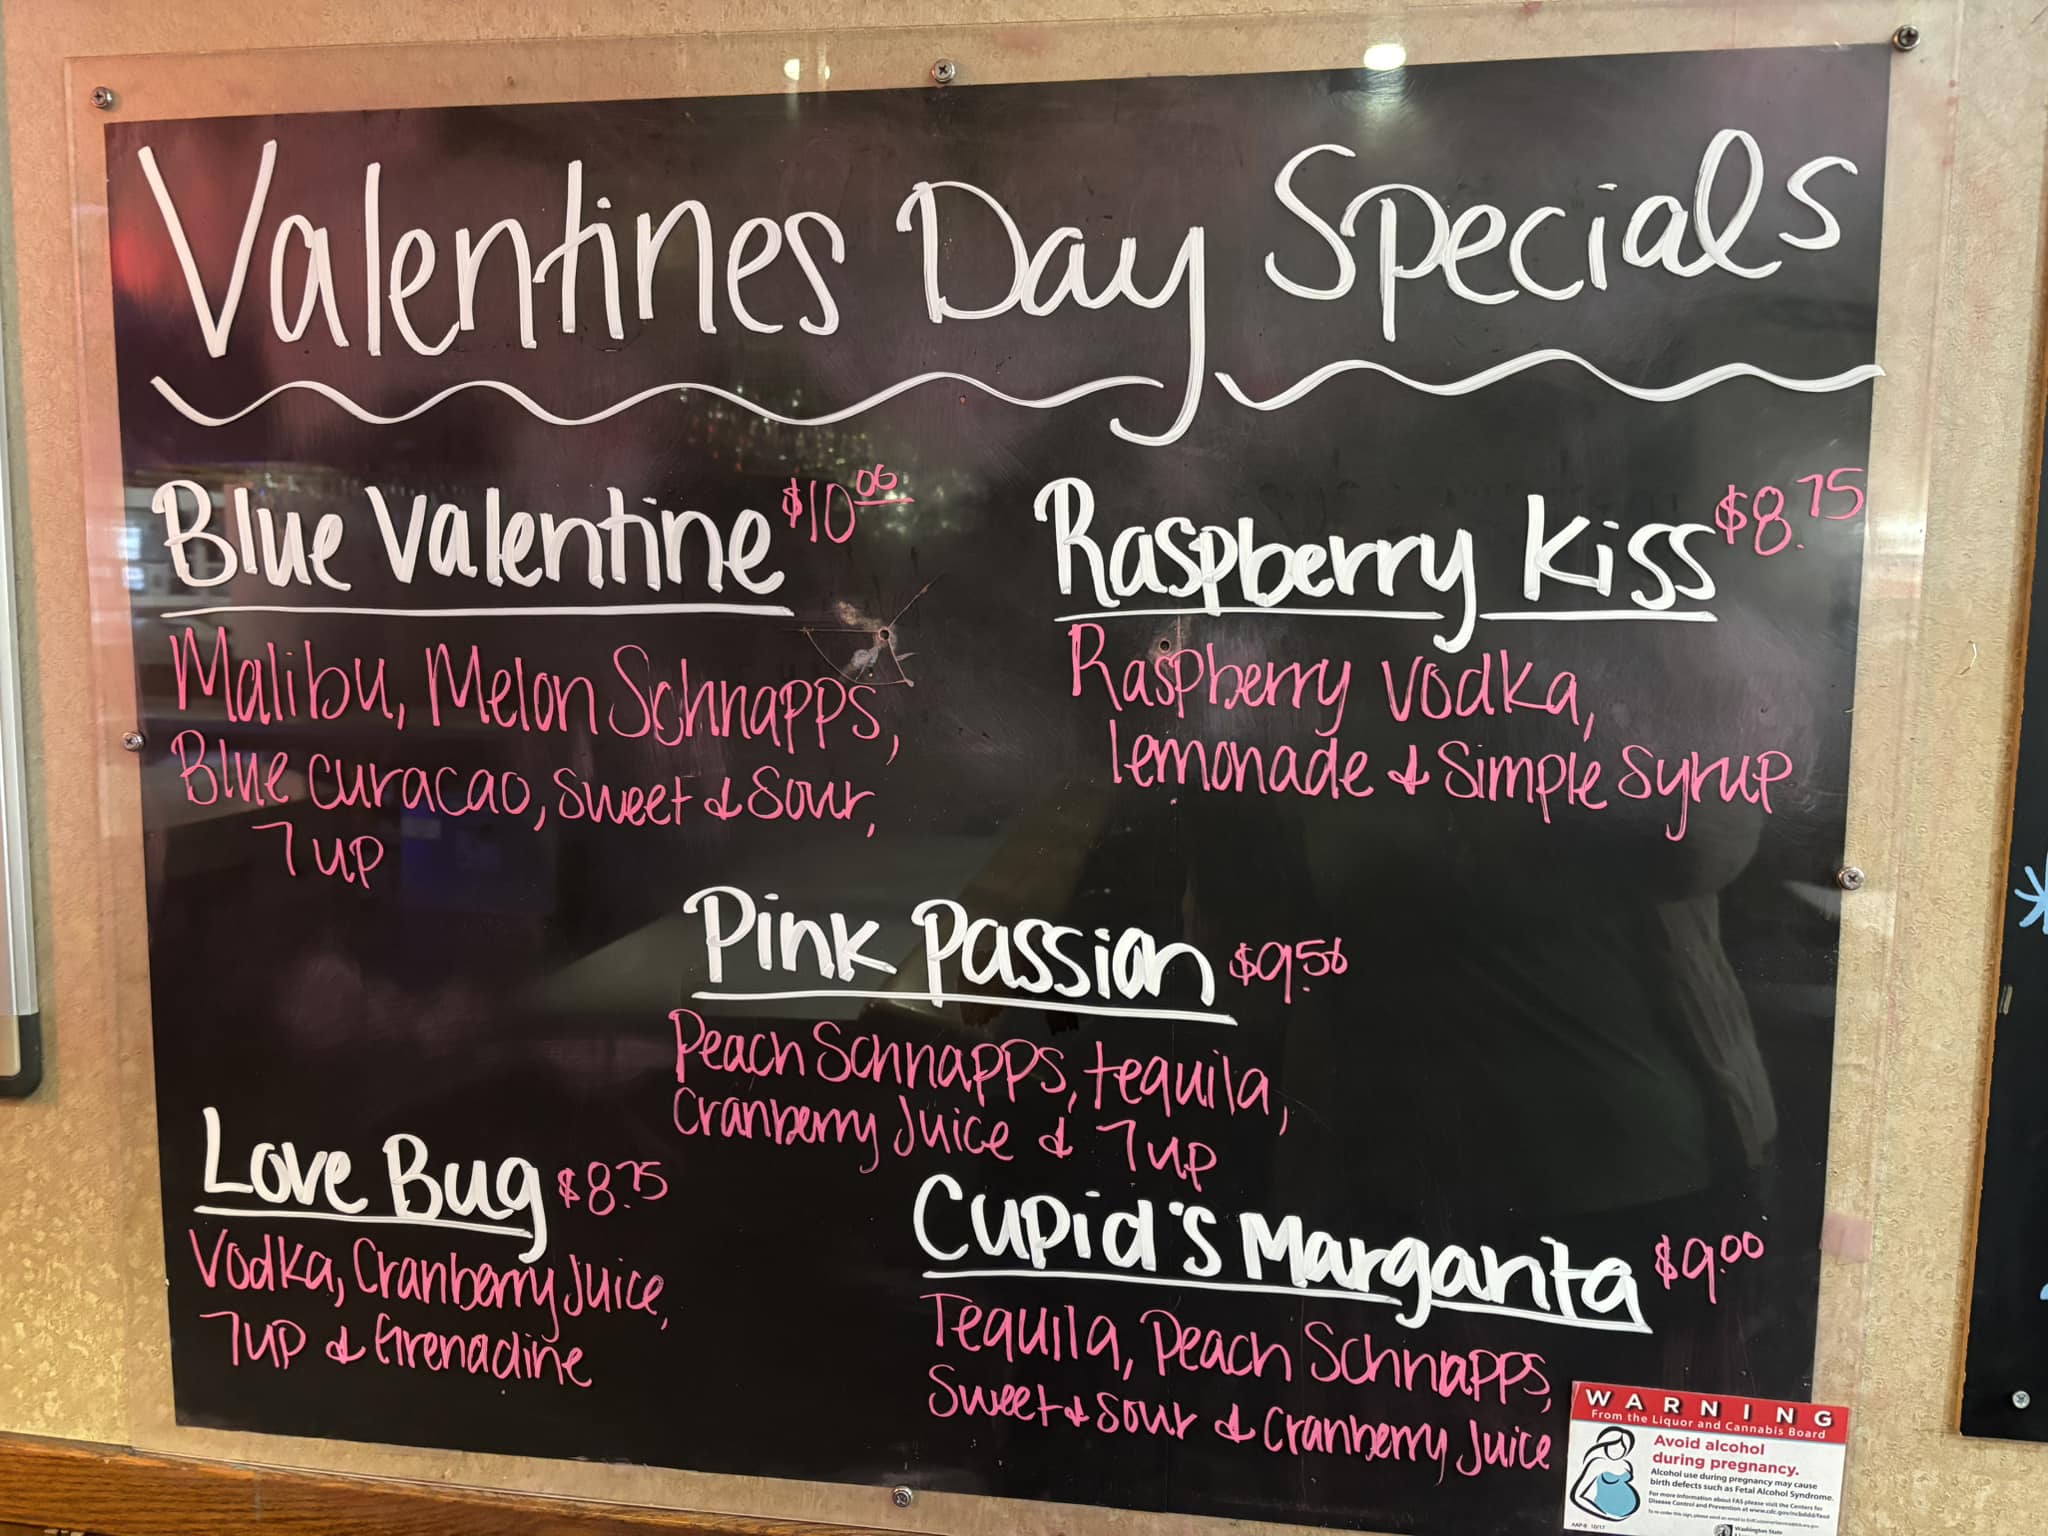 Valentines Day Specials
Blue Valentine $10.00
Malibu, Melon Schnapps,
Blue curacao, sweet & sour,
7 up
Raspberry Kiss $8.75
Raspberry Vodka,
lemonade & Simple Syrup
Pink Passion $9.50
Peach Schnapps, tequila,
Cranberry Juice & 7 up
Love Bug $8.75
Vodka, Cranberry Juice,
7up & Grenadine
Cupid's Margarita $9.00
Tequila, Peach Schnapps,
Sweet & Sour & Cranberry Juice
WARNING
From the Liquor and Cannabis Board
Avoid alcohol
during pregnancy.
Alcohol use during pregnancy may cause
birth defects such as Fetal Alcohol Syndrome.
For more information about FAS please visit the Centers for
Disease Control and Prevention at www.cdc.gov/ncbddd/fasd
Washington State